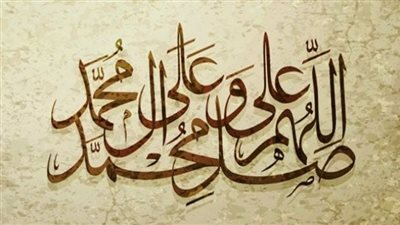 اللّهم صل على محمد وعلى آل محمّد